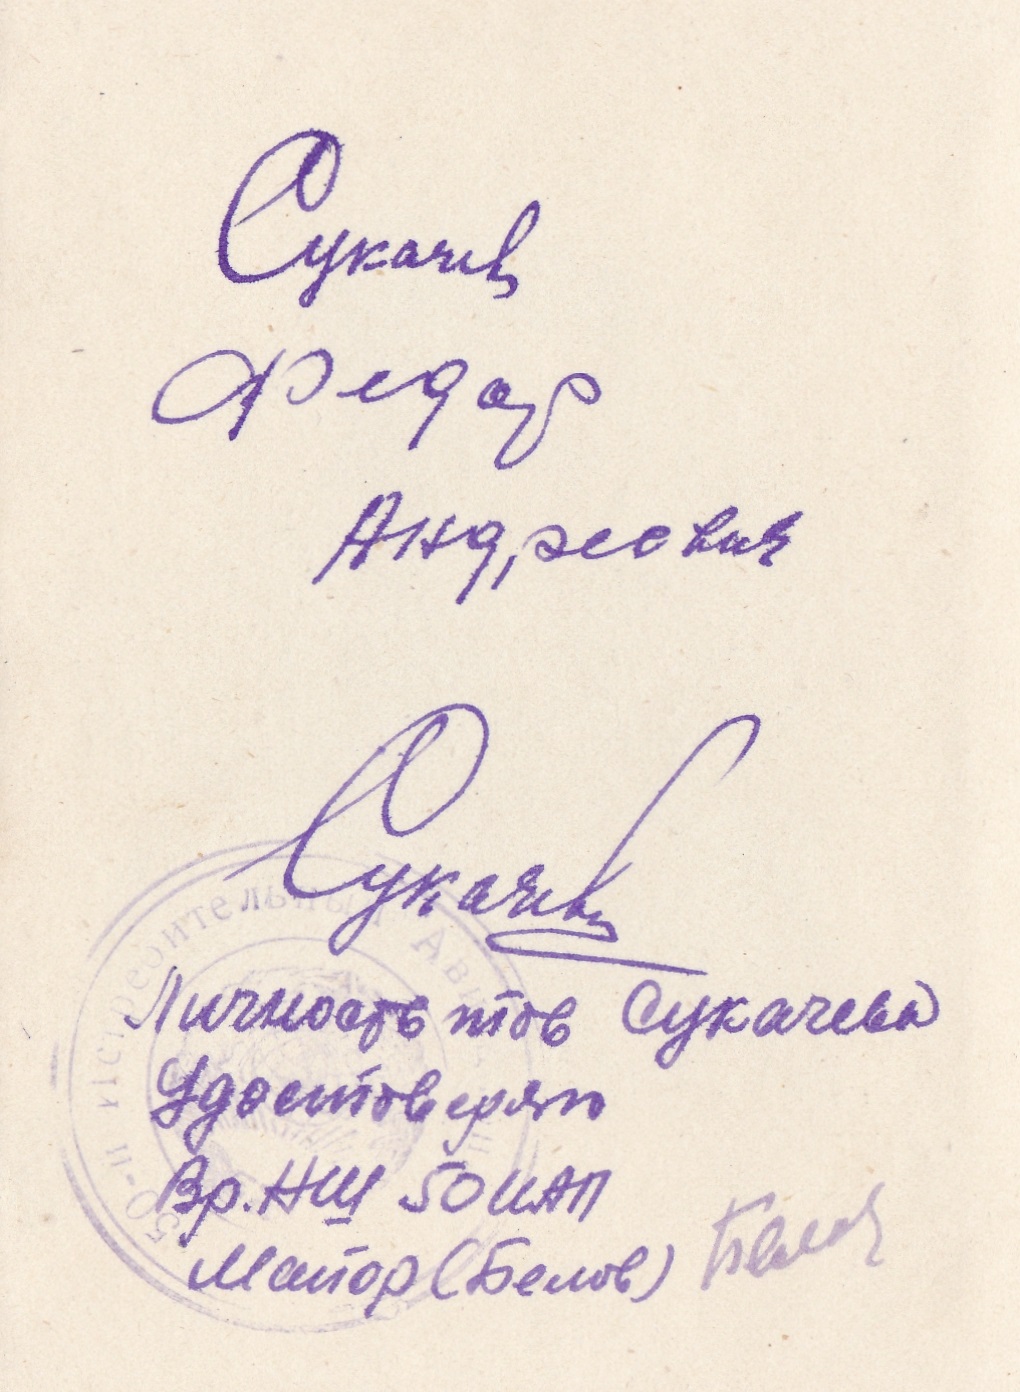 Сукачев
Федор
Андреевич
Сукачев
Личность тов Сукачева
Удостоверяю
Вр. НШ 50 ИАП
Майор (Белов) Белов
50-й Истребительный Ави